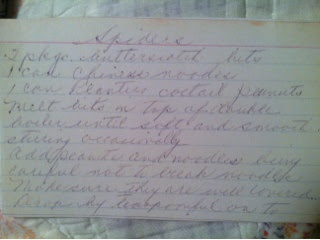 Spiders
2 pkgs butterscotch bits
1 can Chinese noodles
1 can Planters coctail peanuts
Melt bits in top of double
boiler until soft and smooth
stiring occasionally
Add peanuts and noodles being
careful not to break noodles
Make sure they are well covered
Drop by teaspoonful on to